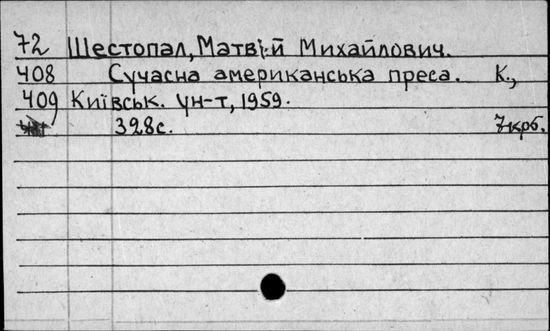 72 Шестопал, Матвій Михайлович.
408 Сучасна американська преса. К.,
409 Київськ. ун-т, 1959.
328с. 7крб.